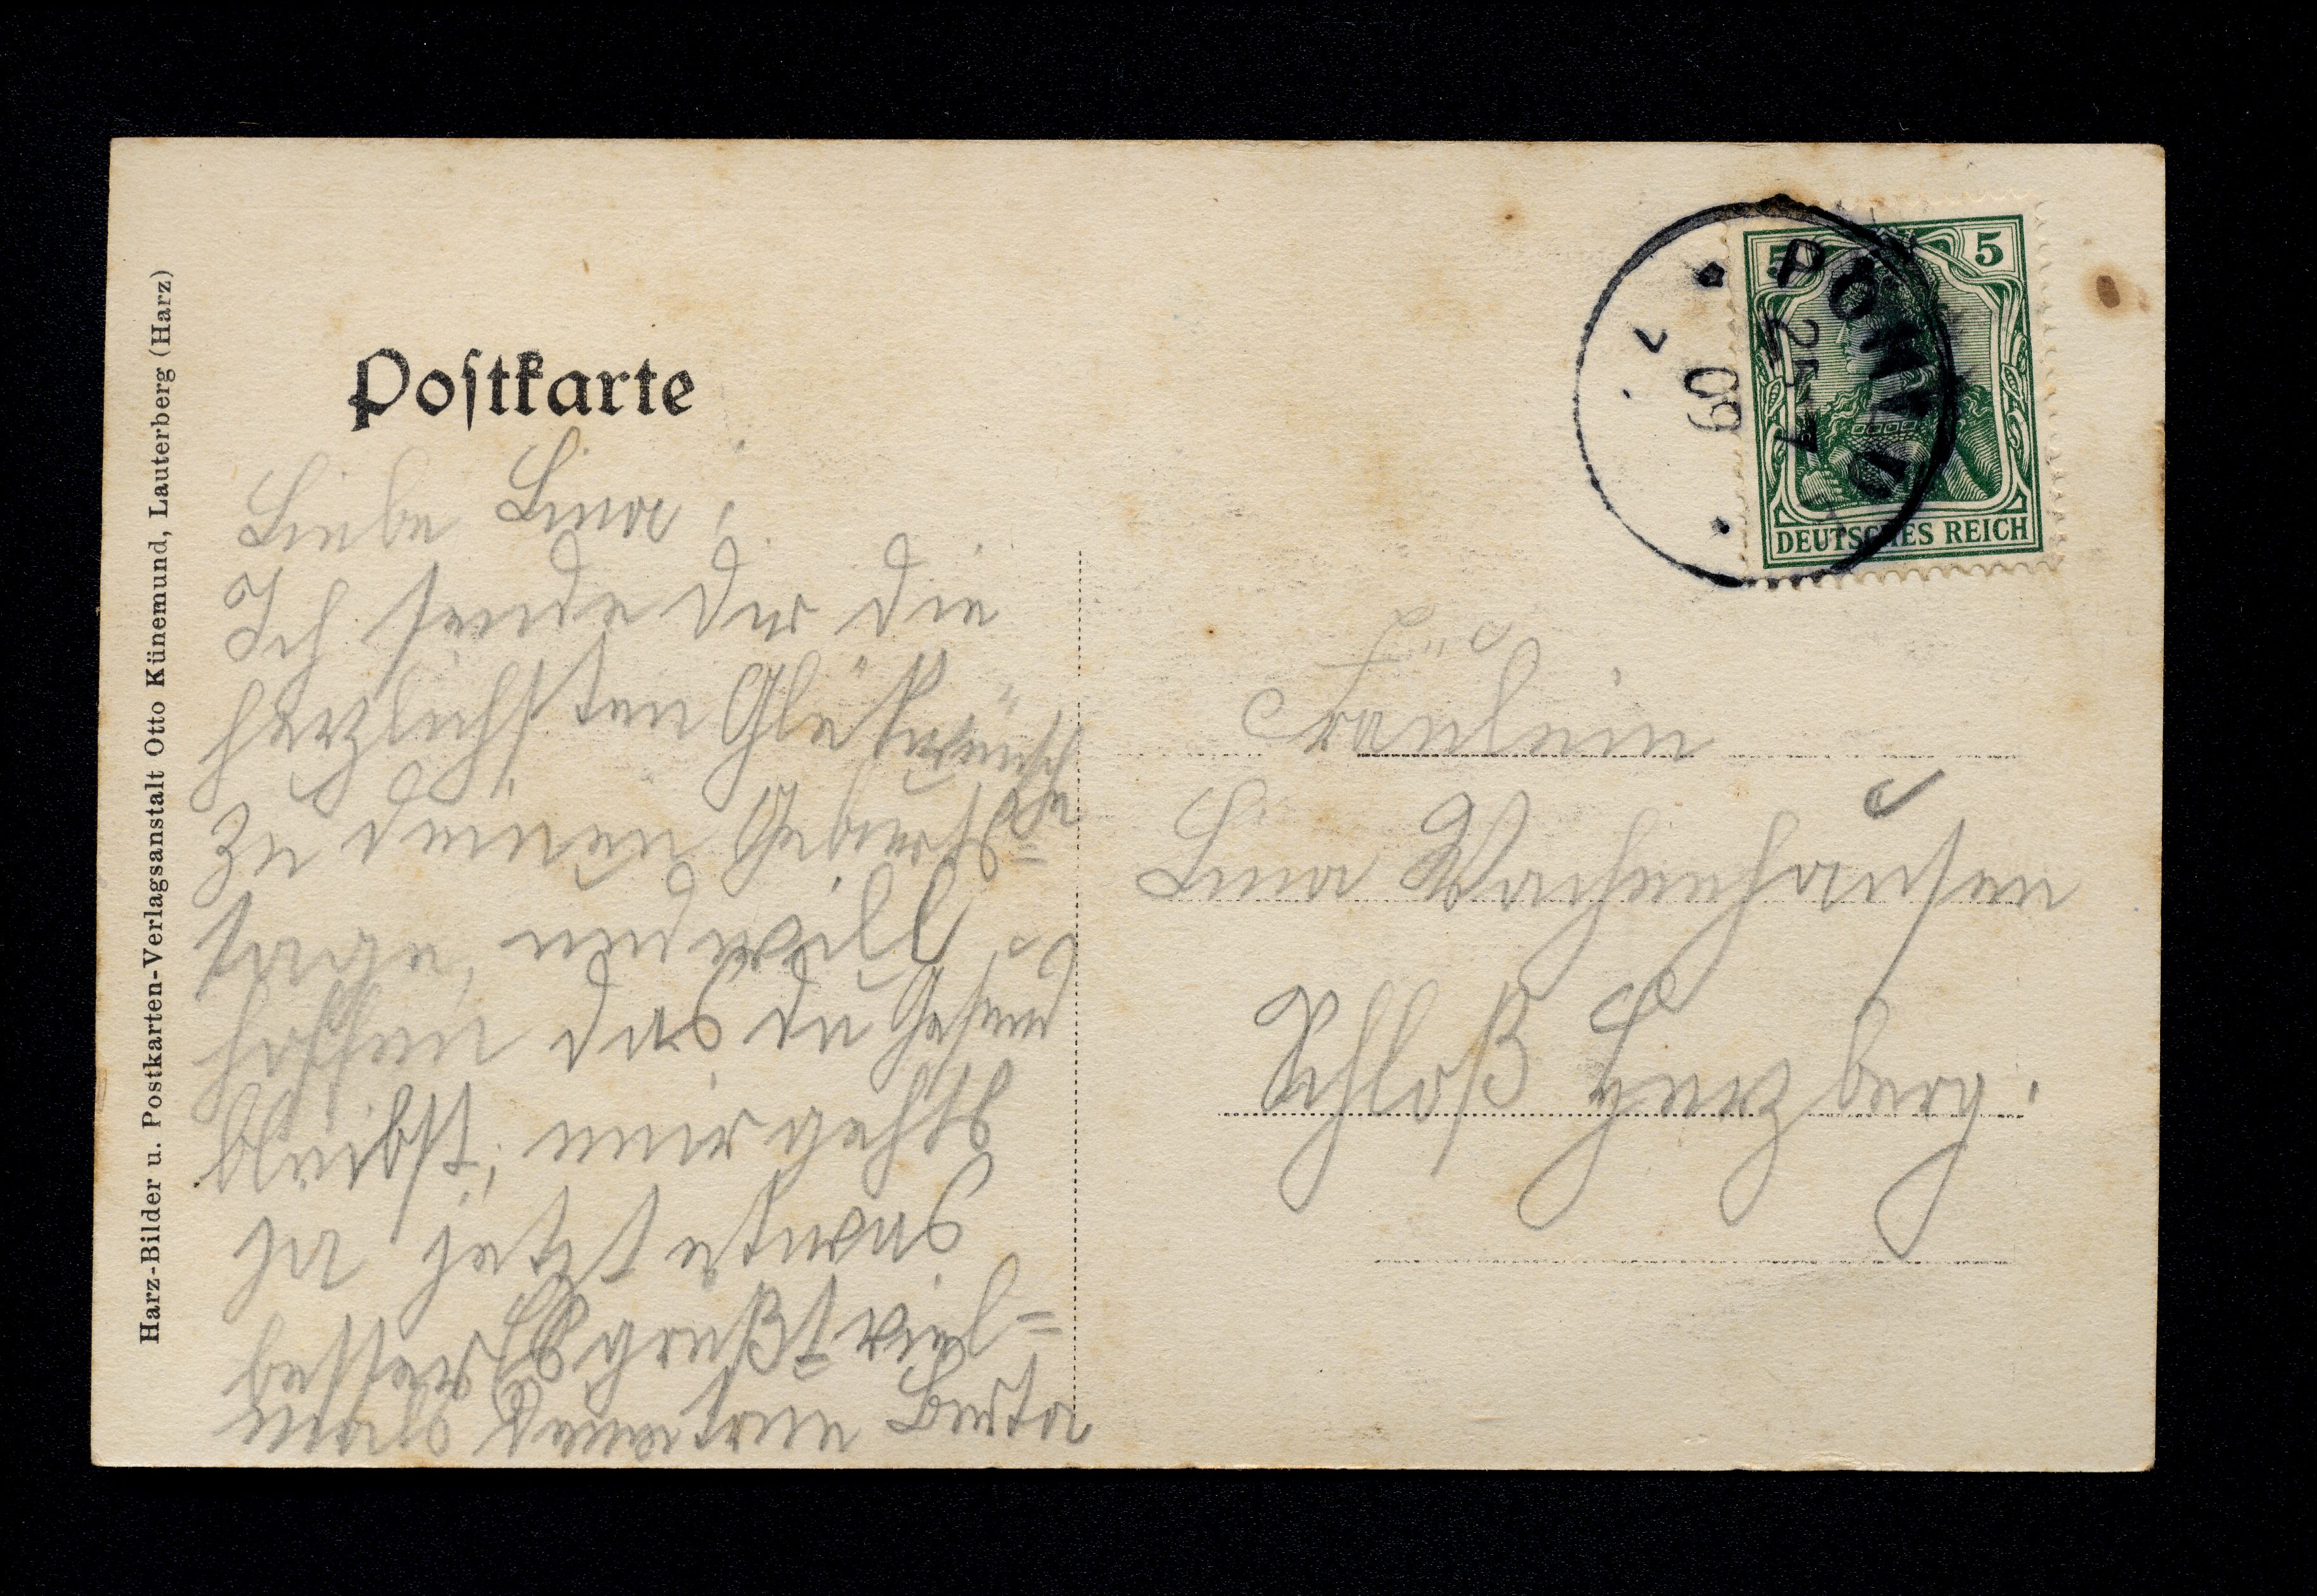 Harz-Bilder u. Postkarten-Verlagsanstalt Otto Künemund, Lauterberg (Harz)
Postkarte
Liebe Lina!
Ich sende dir die
herzlichsten Glükwünsch
e
zu deinen Geburts=
tage, und will
hoffen das du Gesund
bleibst, mir gehts
ja jetzt
besser
Berta
5 5
DEUTSCHES REICH
PÖHLD
25
09
Fräulein
Lina Wachenhausen
Schloß Herzberg.